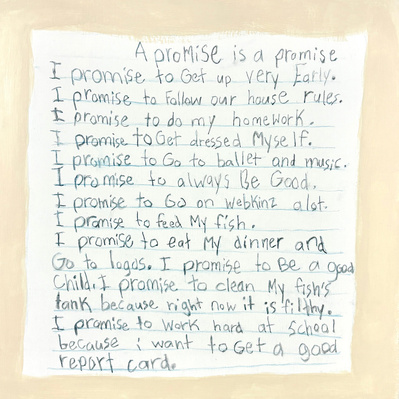 A promise is a promise
I promise to Get up very Early.
I promise to Follow our house rules.
I promise to do my homework.
I promise to Get dressed Myself.
I promise to Go to ballet and music.
I promise to always Be Good.
I promise to Go on webkinz alot.
I promise to feed My fish.
I promise to eat My dinner and
Go to logos. I promise to Be a good
child. I promise to clean My fish's
tank because right now it is filthy.
I promise to work hard at school
because i want to Get a good
report card.